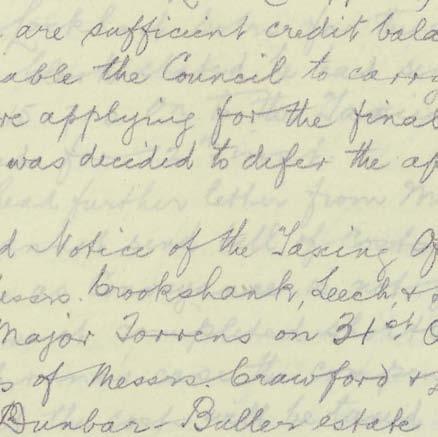 are sufficient credit bala
able the Council to carry
re applying for the final
was decided to defer the ap
ead further letter from M
d Notice of the Taxing Of
essrs. Crookshank, Leech, &
Major Torrens on 31st O
s of Messrs. Crawford &
Dunbar-Buller estate